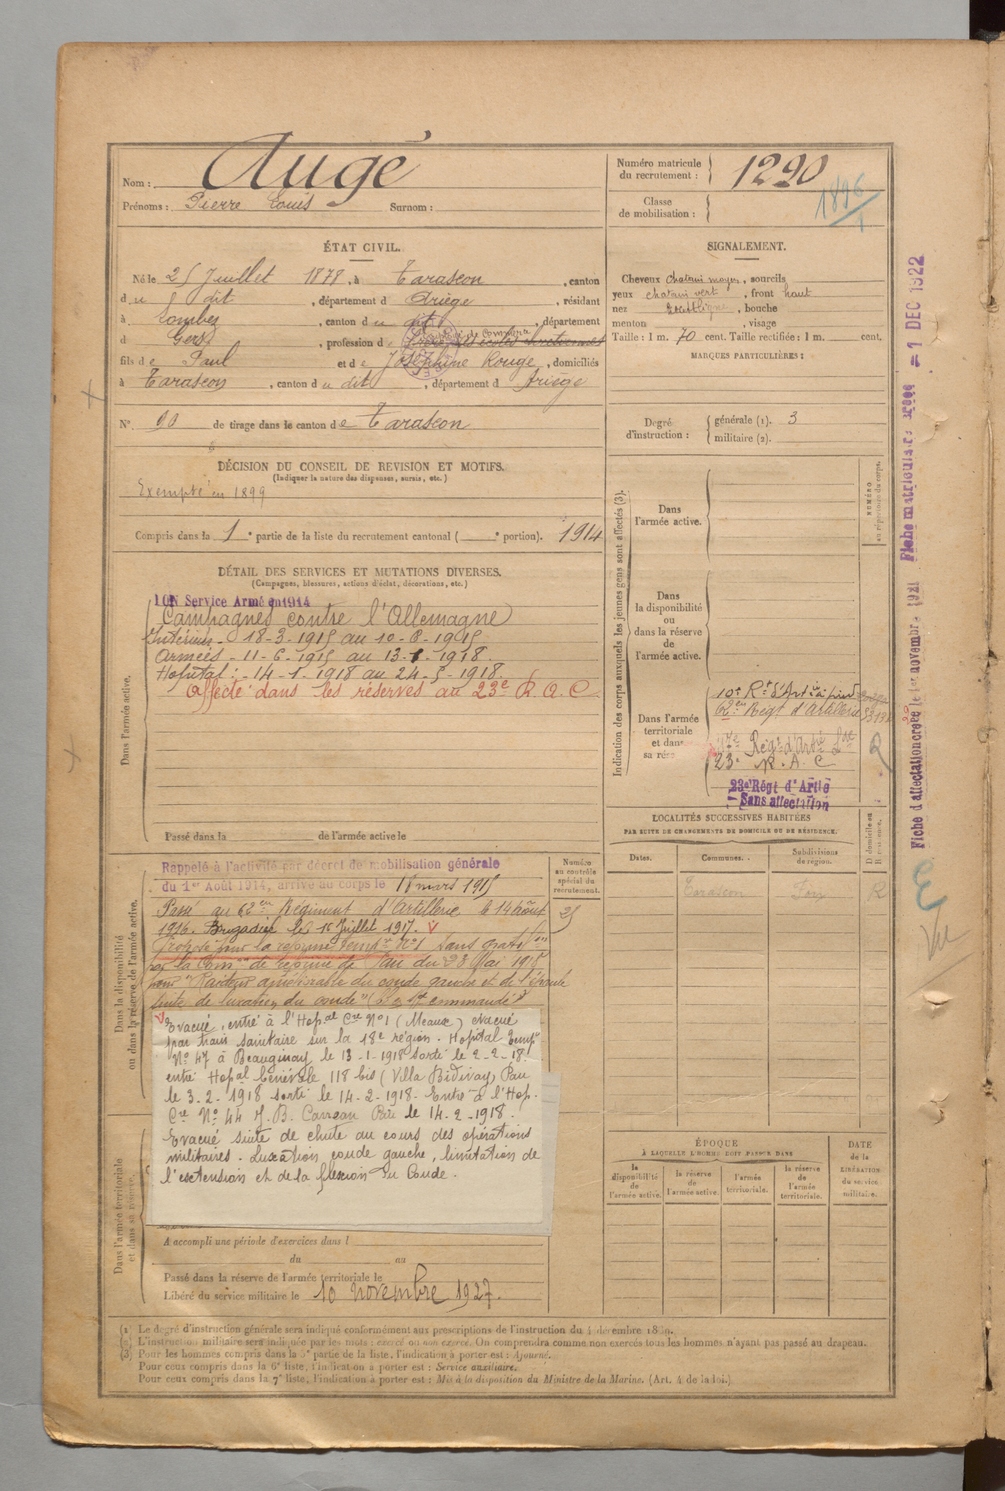 Nom : Augé
Prénoms : Pierre Louis Surnom :
Numéro matricule du recrutement : 1290
Classe de mobilisation : 1896
ÉTAT CIVIL.
Né le 25 Juillet 1878, à Tarascon, canton
du dit, département d Ariège, résidant
à Lombez, canton du dit, département
d Gers, profession d
fils de Paul et de Joséphine Rouge, domiciliés
à Tarascon, canton du dit, département d Ariège
N° 90 de tirage dans le canton de Tarascon
DÉCISION DU CONSEIL DE REVISION ET MOTIFS.
(Indiquer la nature des dispenses, sursis, etc.)
Exempté en 1899
Compris dans la 1e partie de la liste du recrutement cantonal ( e portion). 1914
DÉTAIL DES SERVICES ET MUTATIONS DIVERSES.
(Campagnes, blessures, actions d'éclat, décorations, etc.)
Service Armé en 1914
Campagnes contre l'Allemagne
Intérieur - 18-3-1915 au 10-6-1915
Armées - 11-6-1915 au 13-1-1918
Hopital : - 14-1-1918 au 24-5-1918.
affecté dans les réserves au 23e R.A.C.
Dans l'armée active.
Passé dans la de l'armée active le
SIGNALEMENT.
Cheveux chatain moyen, sourcils
yeux chatain vert, front haut
nez rectiligne, bouche
menton , visage
Taille : 1 m. 70 cent. Taille rectifiée : 1 m. cent.
MARQUES PARTICULIÈRES :
Degré d'instruction : générale (1). 3
militaire (2).
Indication des corps auxquels les jeunes gens sont affectés (3).
NUMÉRO
au répertoire du corps.
Dans l'armée active.
Dans la disponibilité ou dans la réserve de l'armée active.
Dans l'armée territoriale et dans sa réserve
10e Rt d'Artie à pied
62e Régt d'Artillerie
23e R.A.C
23e Régt d'Artie
Sans affectation
LOCALITÉS SUCCESSIVES HABITÉES
PAR SUITE DE CHANGEMENTS DE DOMICILE OU DE RÉSIDENCE.
Dates. Communes. Subdivisions de région.
D domicile ou R résidence.
Tarascon Foix R
Fiche d'affectation créée le 1er novembre 1921 Fiche matriculaire créée = 1 DEC 1922
Dans la disponibilité ou dans la réserve de l'armée active.
Numéro au contrôle spécial du recrutement.
Rappelé à l'activité par décret de mobilisation générale
du 1er Août 1914, arrivé au corps le 18 mars 1915
Passé au 62e Régiment d'Artillerie le 14 Août
1916. Brigadier le 16 Juillet 1917.
Proposé pour la réforme tempre N°1 sans grat
par la Comon de réforme de Pau du 23 Mai 1918
pour "Raideur améliorable du coude gauche et de l'épaule
suite de luxation du coude"
Evacué, entré à l'Hopal Cre N°1 (Meaux) evacué
par train sanitaire sur la 18e région. Hopital Tempre
N° 47 à Beaugency le 13-1-1918 sorti le 2-2-18.
entré Hopal Bénévole 118 bis (Villa Bidivay) Pau
le 3-2-1918 sorti le 14-2-1918. Entré à l'Hop.
Cre N° 44 J. B. Carreau Pau le 14-2-1918.
Evacué suite de chute au cours des opérations
militaires. Luxation coude gauche, limitation de
l'extension et de la flexion du Coude.
Dans l'armée territoriale et dans sa réserve.
A accompli une période d'exercices dans l
du au
Passé dans la réserve de l'armée territoriale le
Libéré du service militaire le 10 novembre 1927.
ÉPOQUE
À LAQUELLE L'HOMME DOIT PASSER DANS
la disponibilité de l'armée active.
la réserve de l'armée active.
l'armée territoriale.
la réserve de l'armée territoriale.
DATE de la LIBÉRATION du service militaire.
(1) Le degré d'instruction générale sera indiqué conformément aux prescriptions de l'instruction du 4 décembre 1889.
(2) L'instruction militaire sera indiquée par les mots : exercé ou non exercé. On comprendra comme non exercés tous les hommes n'ayant pas passé au drapeau.
(3) Pour les hommes compris dans la 5e partie de la liste, l'indication à porter est : Ajourné.
Pour ceux compris dans la 6e liste, l'indication à porter est : Service auxiliaire.
Pour ceux compris dans la 7e liste, l'indication à porter est : Mis à la disposition du Ministre de la Marine. (Art. 4 de la loi.)